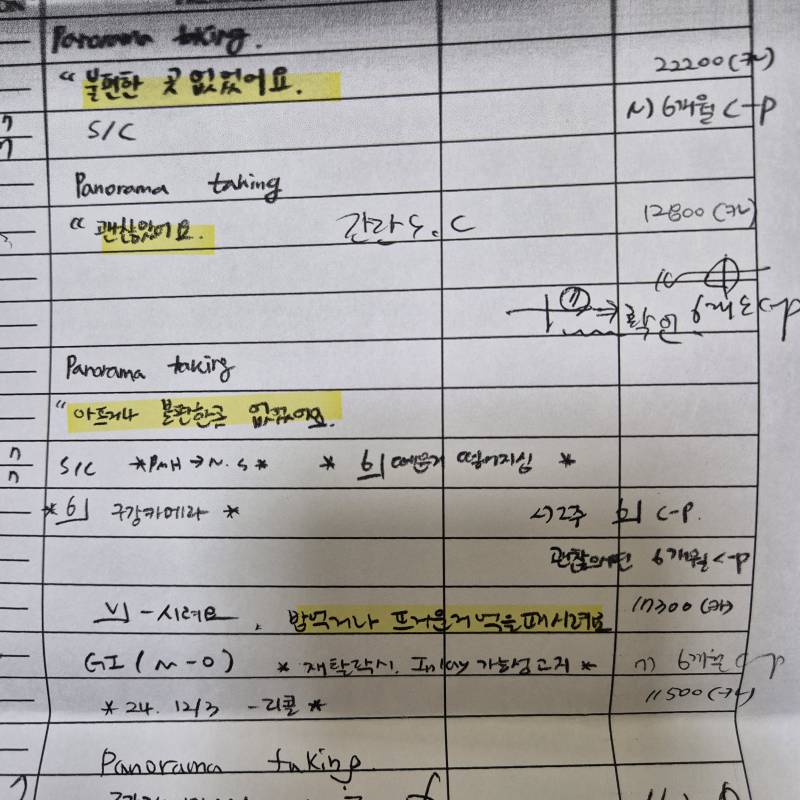 Panorama taking.
"불편한 곳 없었어요. 22200(카)
S/C 6개월 C-P
Panorama taking
"괜찮았어요. C 12800(카)
확인 C-p
Panorama taking
"아프거나 불편한곳 없었어요.
S/C *PMH → N.S* * 6| 때운거 떨어지심 *
* 6| 구강카메라 * 2주 C-P.
6개월 C-P
-시려요. 밥먹거나 뜨거운거 먹을때 시려요 17300(카)
GI( * 재탈락시. 가능성고지 * 6개월
* 24. 12/3 -리콜 * 11500
Panorama taking